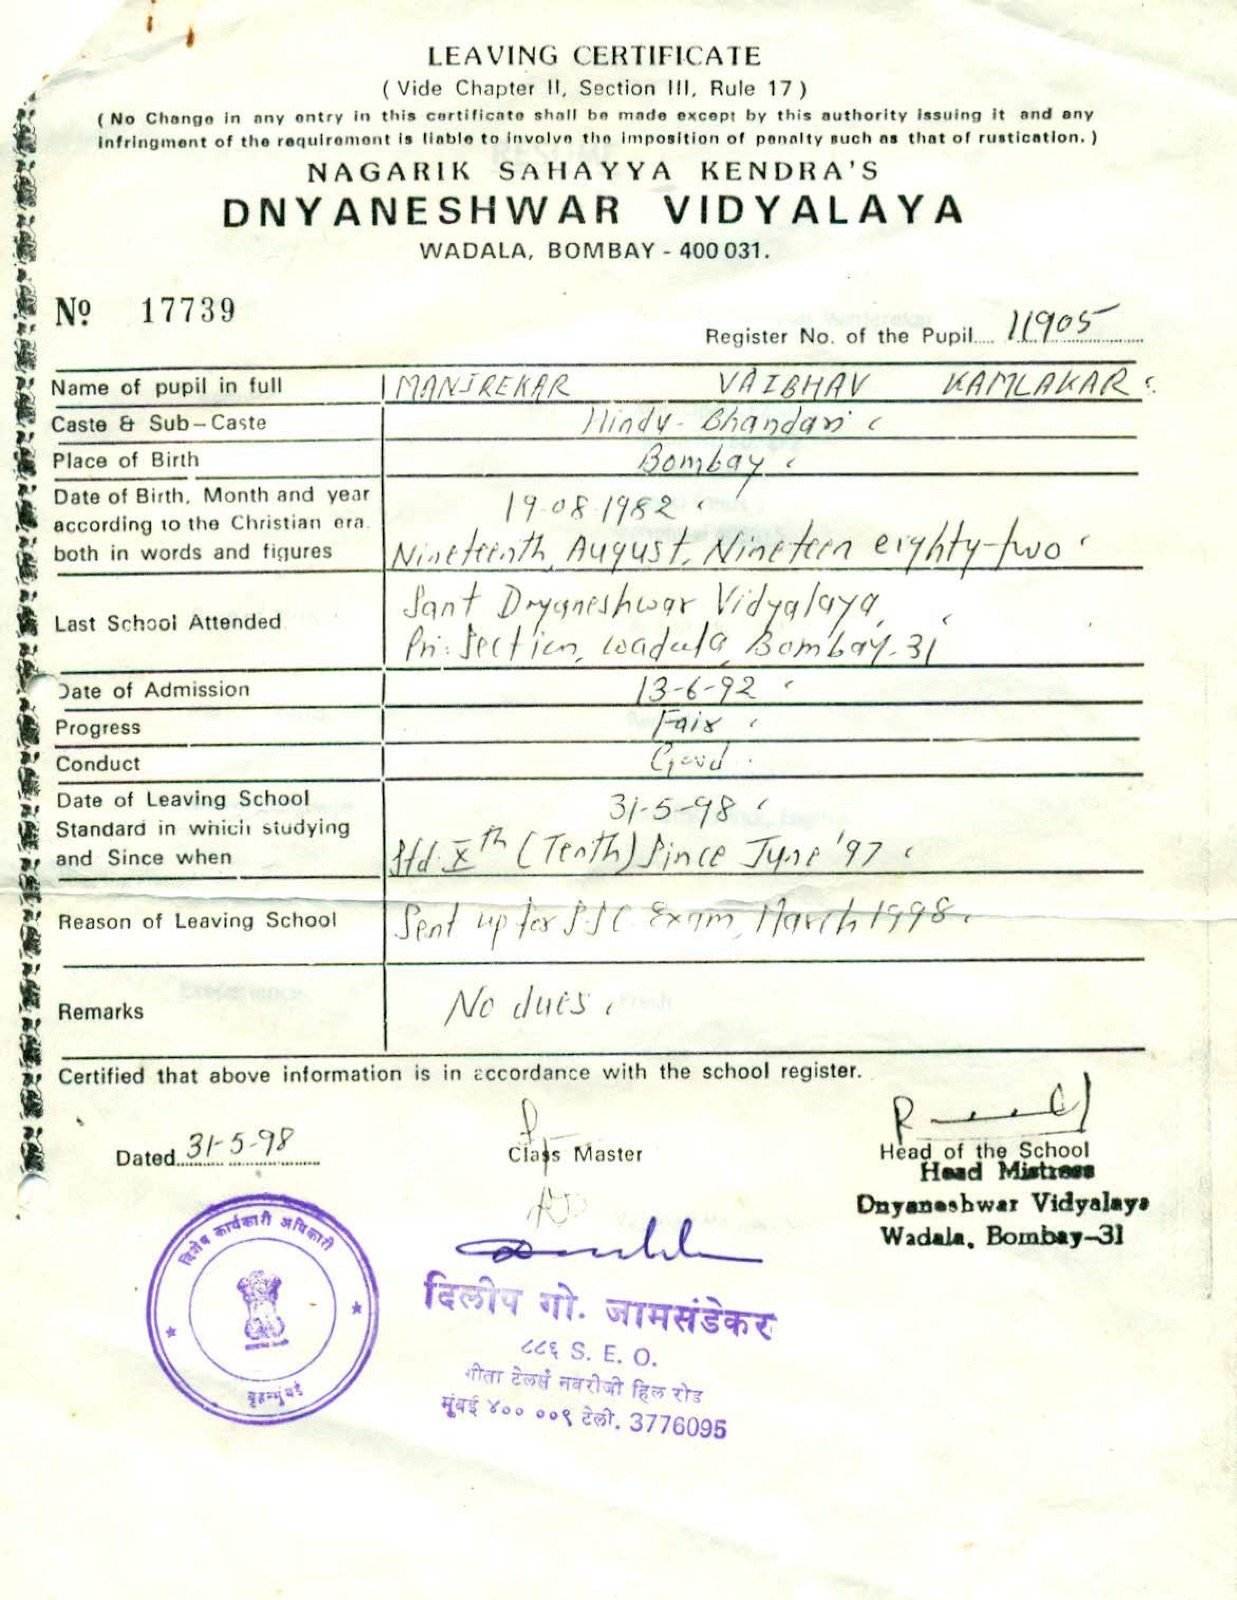 LEAVING CERTIFICATE
( Vide Chapter II, Section III, Rule 17 )
( No Change in any entry in this certificate shall be made except by this authority issuing it and any
infringment of the requirement is liable to involve the imposition of penalty such as that of rustication. )
NAGARIK SAHAYYA KENDRA'S
DNYANESHWAR VIDYALAYA
WADALA, BOMBAY - 400 031.
Nº 17739
Register No. of the Pupil 11905
Name of pupil in full MANJREKAR VAIBHAV KAMLAKAR
Caste & Sub-Caste Hindu-Bhandari
Place of Birth Bombay
Date of Birth, Month and year 19-08-1982
according to the Christian era
both in words and figures Nineteenth, August, Nineteen eighty-two
Last School Attended Sant Dnyaneshwar Vidyalaya,
Pri. Section, Wadala, Bombay-31
Date of Admission 13-6-92
Progress Fair
Conduct Good
Date of Leaving School 31-5-98
Standard in which studying
and Since when Std. Xth (Tenth) Since June '97
Reason of Leaving School Sent up for SSC Exam, March 1998.
Remarks No dues.
Certified that above information is in accordance with the school register.
Dated 31-5-98
Class Master
Head of the School
Head Mistress
Dnyaneshwar Vidyalaya
Wadala, Bombay-31
विशेष कार्यकारी अधिकारी
बृहन्मुंबई
दिलीप गो. जामसंडेकर
८८६ S. E. O.
गीता टेलर्स नवरोजी हिल रोड
मुंबई ४०० ००९ टेली. 3776095